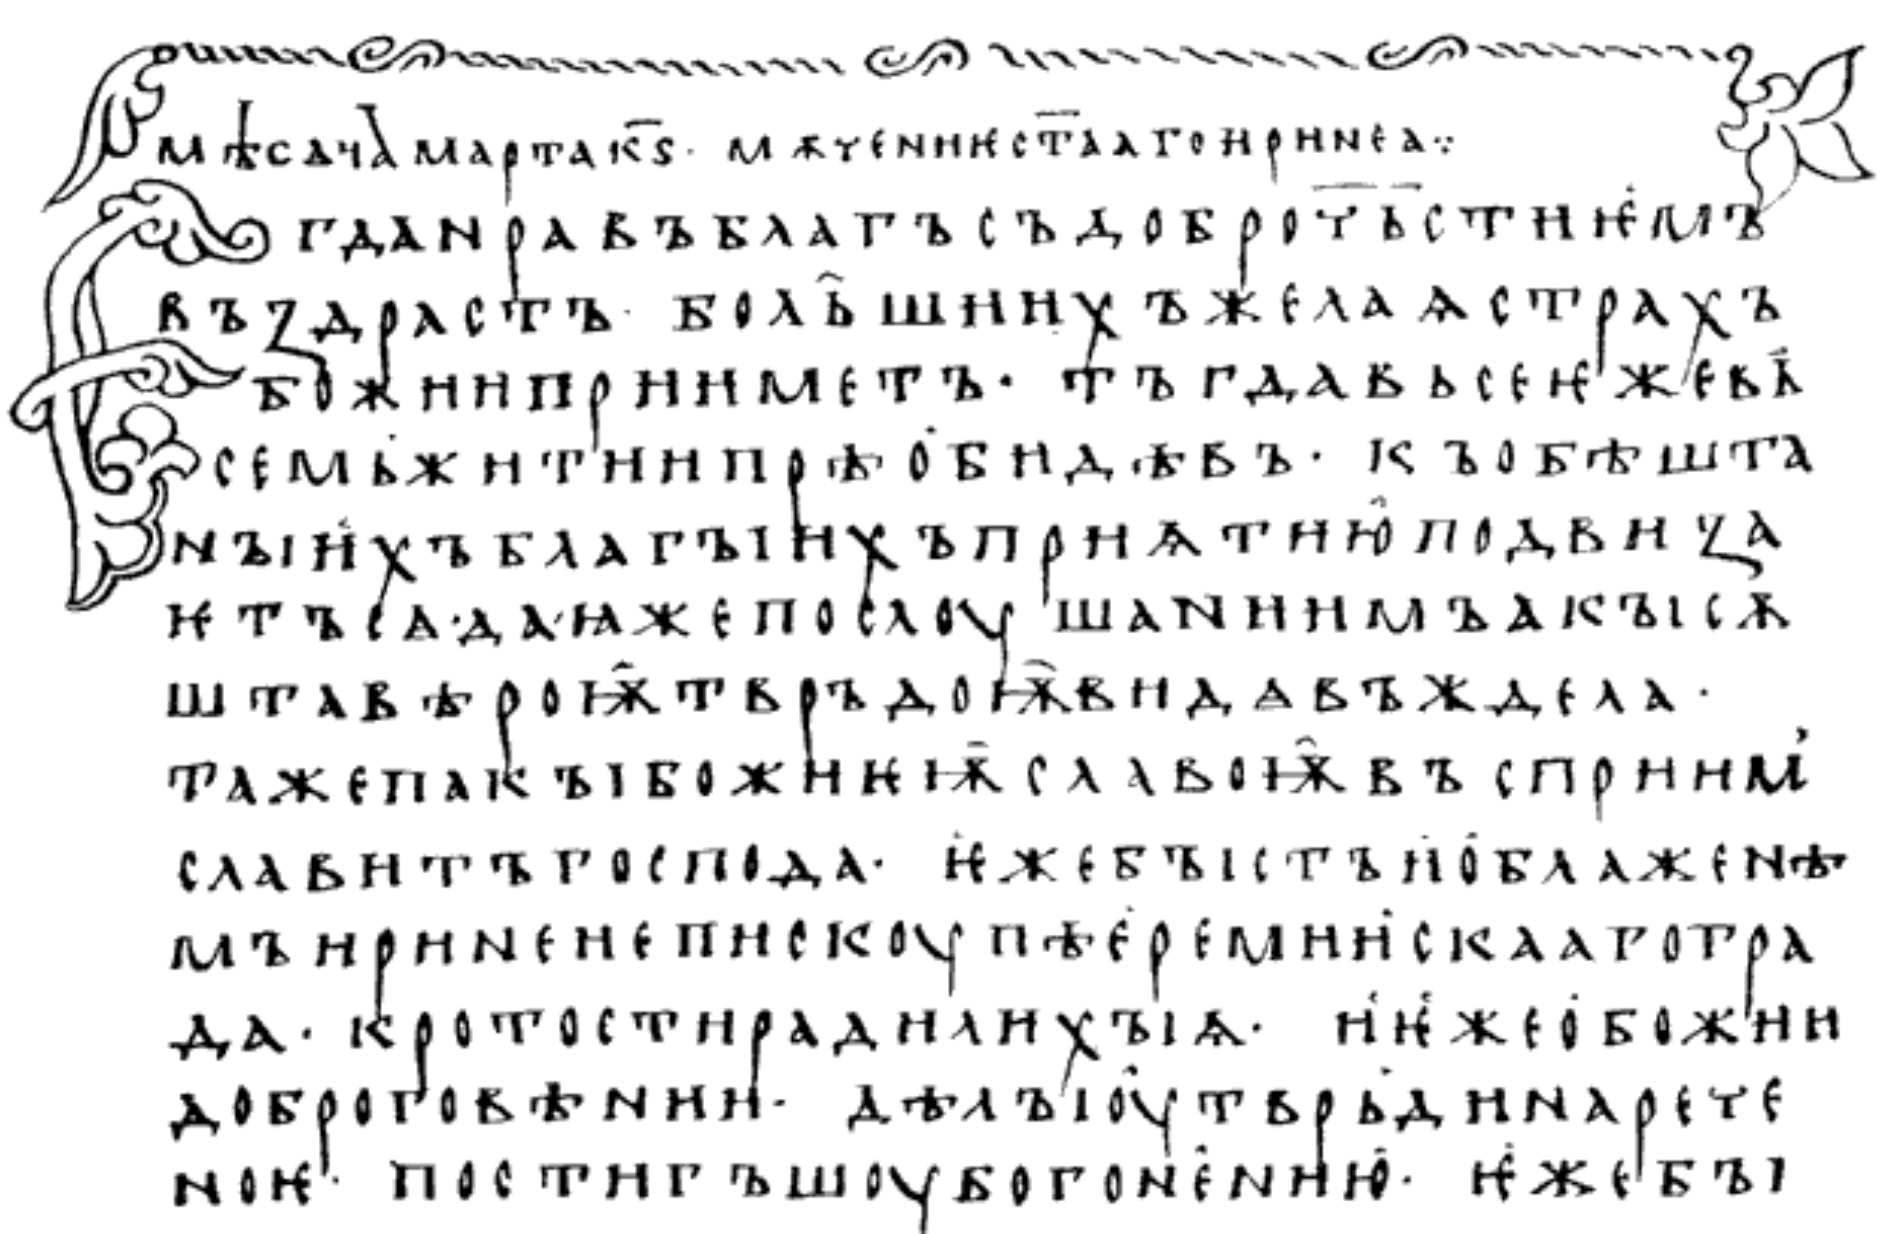 мѣсѧца марта к҃ѕ· мѫчениѥ ст҃ааго иринеа⁘
Егда нравъ благъ съ доброч҃ьстиѥмъ
въздрастъ· большиихъ желаѧ страхъ
божии прииметъ· тъгда вьсе ѥже вь
семь житии прѣобидѣвъ· къ обѣшта
нъіихъ благъіихъ приѧтию подвиза
ѥтъ сѧ· да ꙗже послоушаниимъ акъі сѫ
шта вѣроѭ тврьдоѭ видѧ въждела·
таже пакъі божиеѭ славоѭ въсприим
славитъ господа· ѥже бъістъ и о блаженѣ
мъ иринеи епискоупѣ еремиискааго гра
да· кротости ради лихъіѧ· и ѥже о божии
доброговѣнии· дѣлъі оутврьди нарече
ноѥ· постигъшоу богонению· ѥже бъі